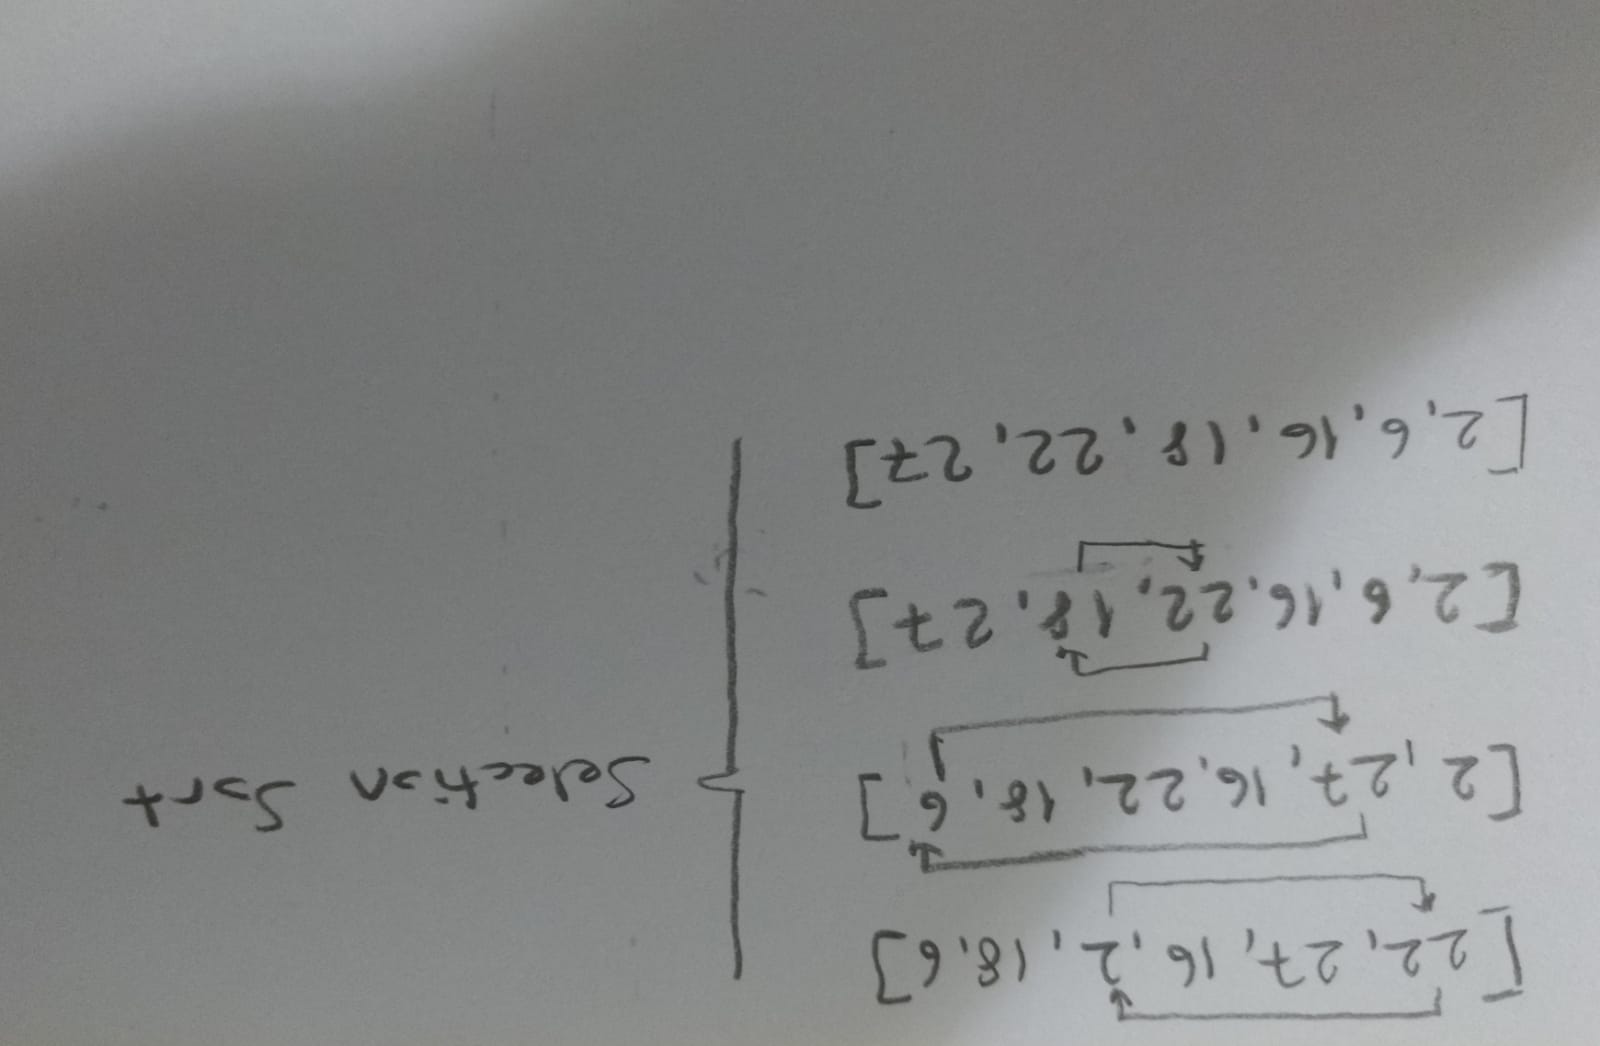 [22, 27, 16, 2, 18, 6]
[2, 27, 16, 22, 18, 6]
[2, 6, 16, 22, 18, 27]
[2, 6, 16, 18, 22, 27]
Selection Sort